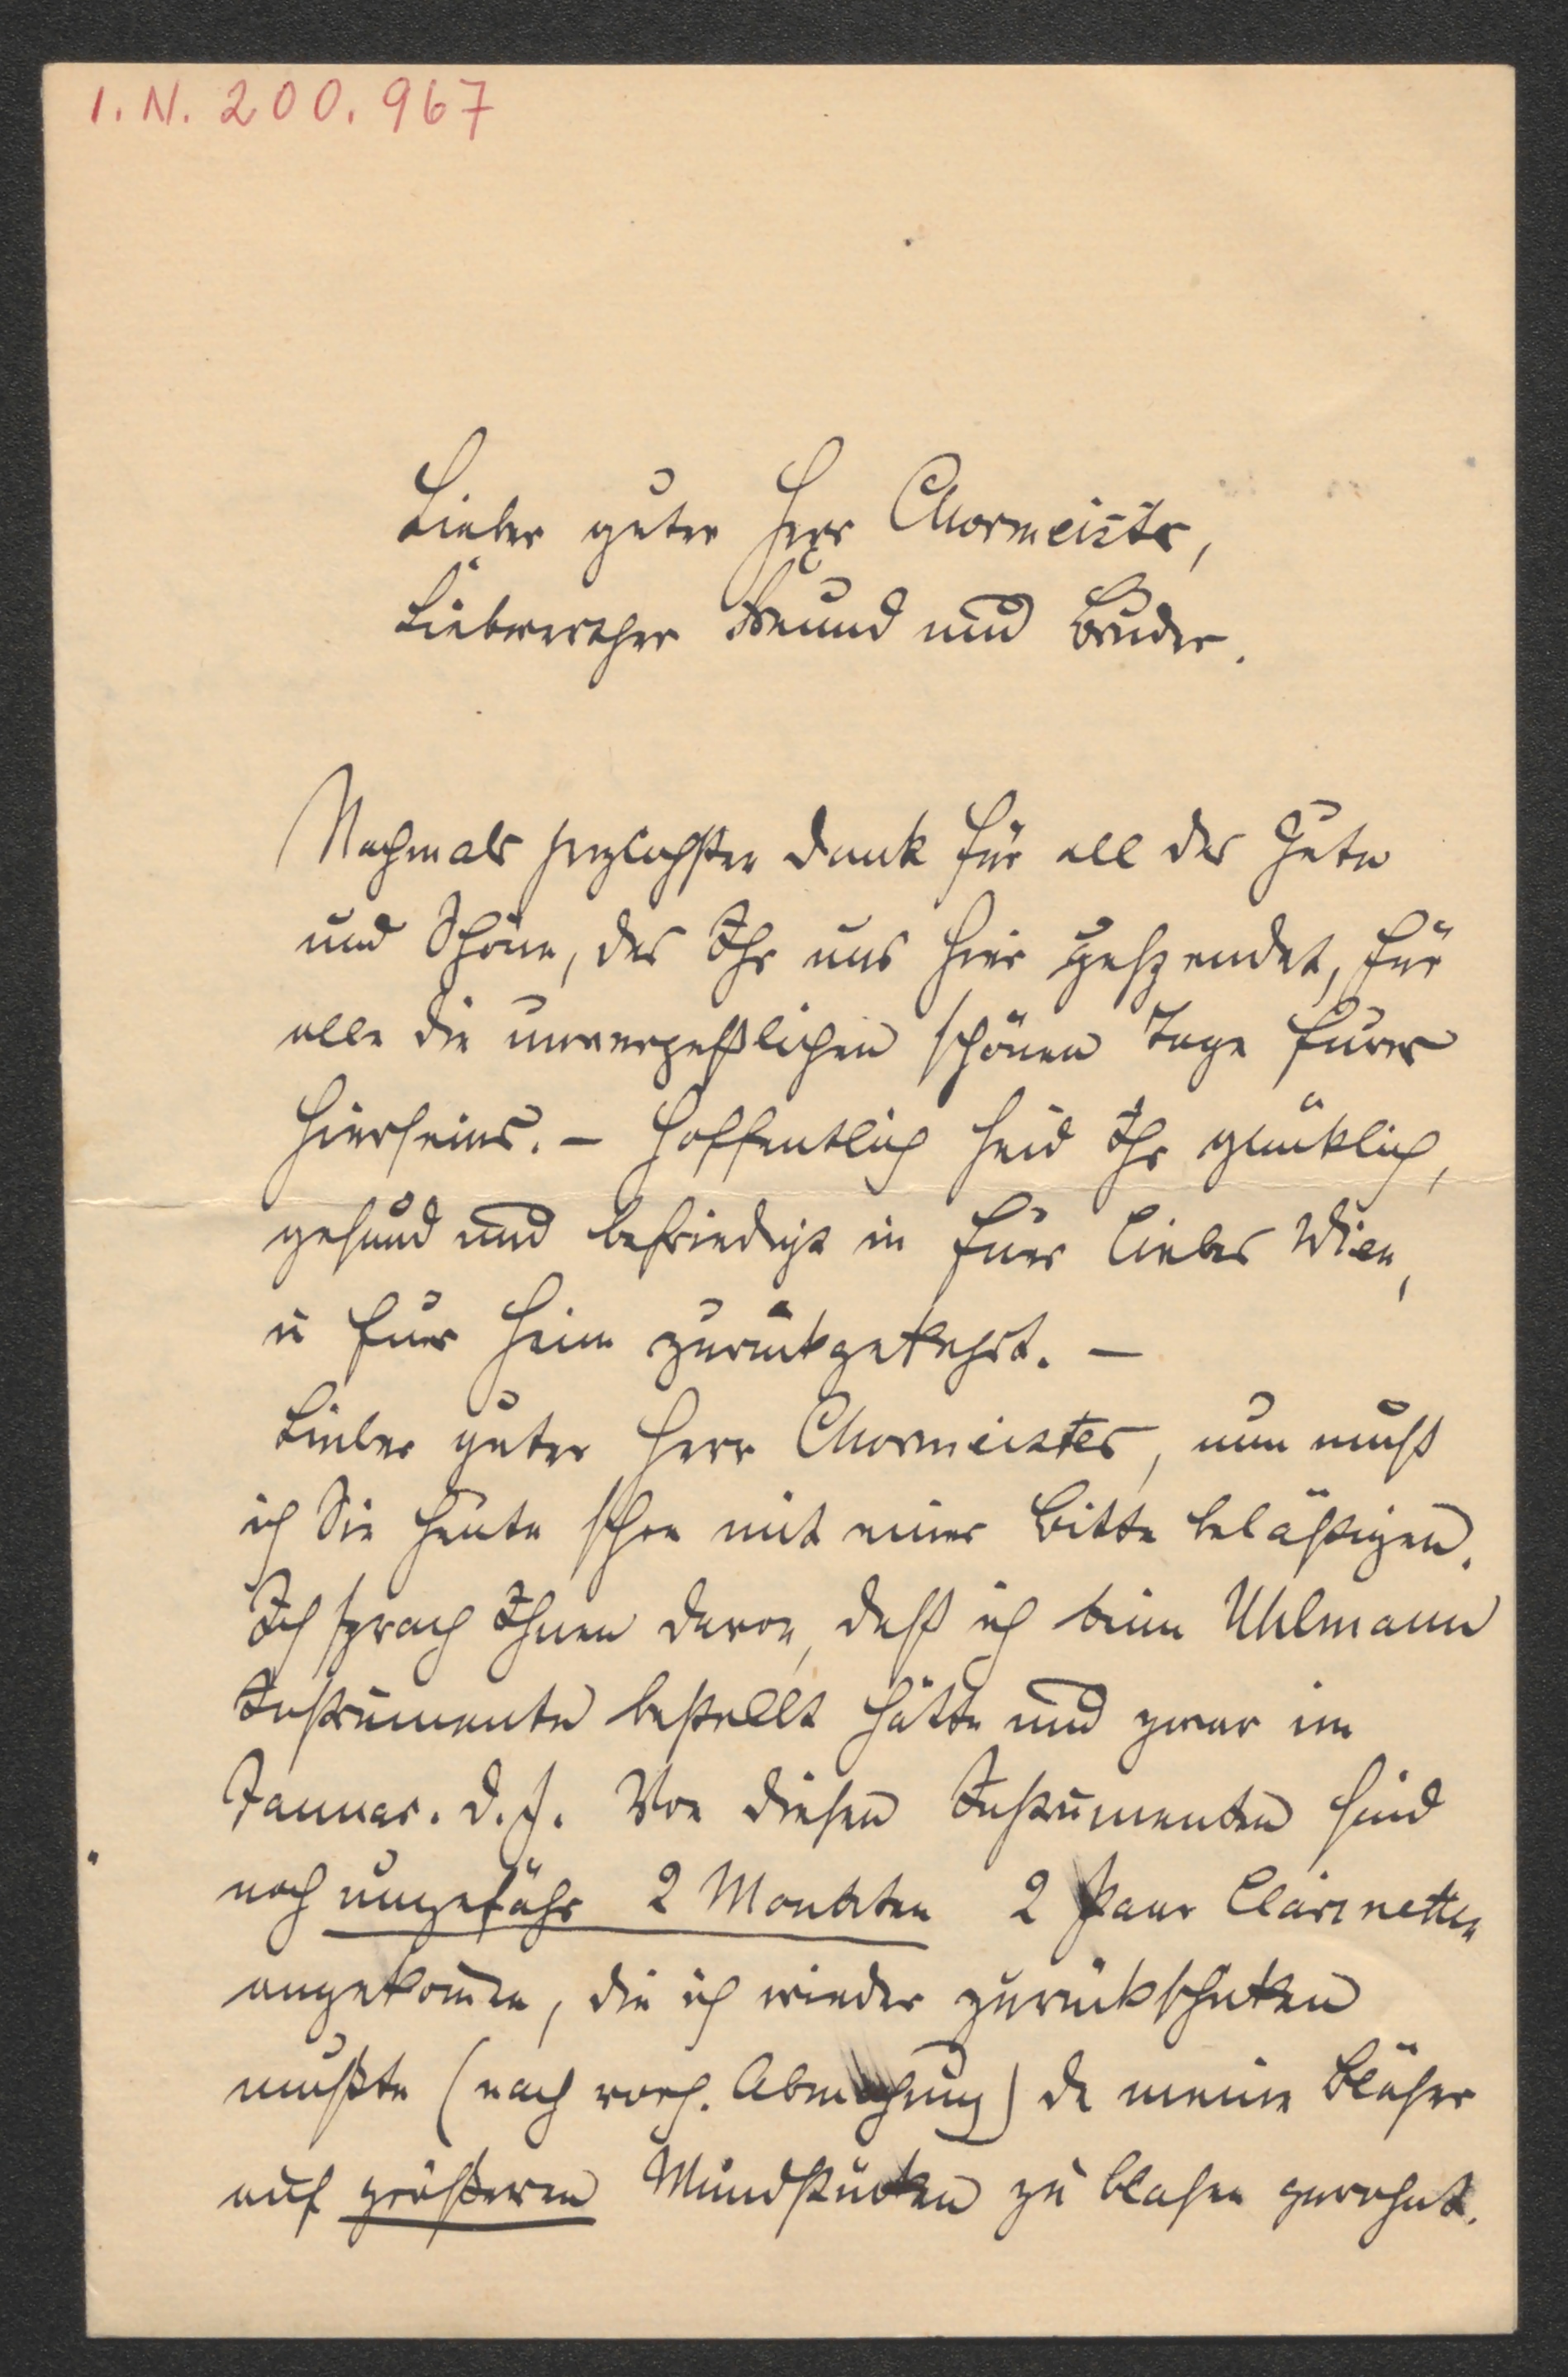 I. N. 200.967
Lieber guter Herr Chormeister,
Liebwerther Freund und Bruder.
Nochmals herzlichsten Dank für all das Gute
und Schöne, das Ihr uns hier gespendet, für
alle die unvergeßlichen schönen Tage Eures
Hierseins. – Hoffentlich seid Ihr glücklich,
gesund und befriedigt in Euer liebes Wien,
u Euer Heim zurückgekehrt. –
Lieber guter Herr Chormeister, nun muß
ich Sie heute schon mit einer Bitte belästigen.
Ich sprach Ihnen davon, daß ich beim Uhlmann
Instrumente bestellt hätte und zwar im
Januar. d. J. Von diesen Instrumenten sind
nach ungefähr 2 Monaten 2 Paar Clarinetten
angekommen, die ich wieder zurückschicken
mußte (nach vorh. Abmachung) da meine Bläser
auf größeren Mundstücken zu blasen gewohnt.